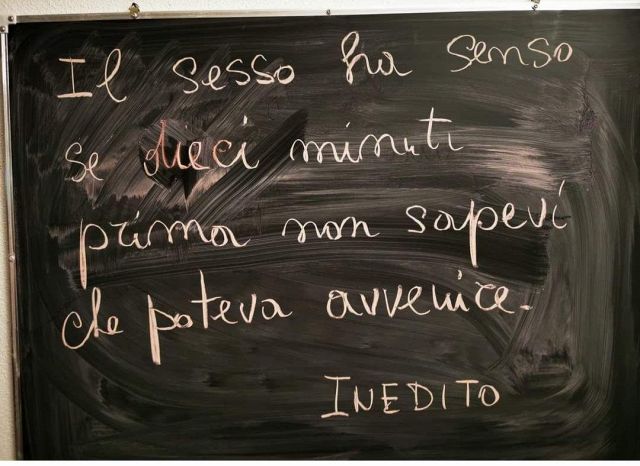 Il sesso ha senso
se dieci minuti
prima non sapevi
che poteva avvenire.
INEDITO